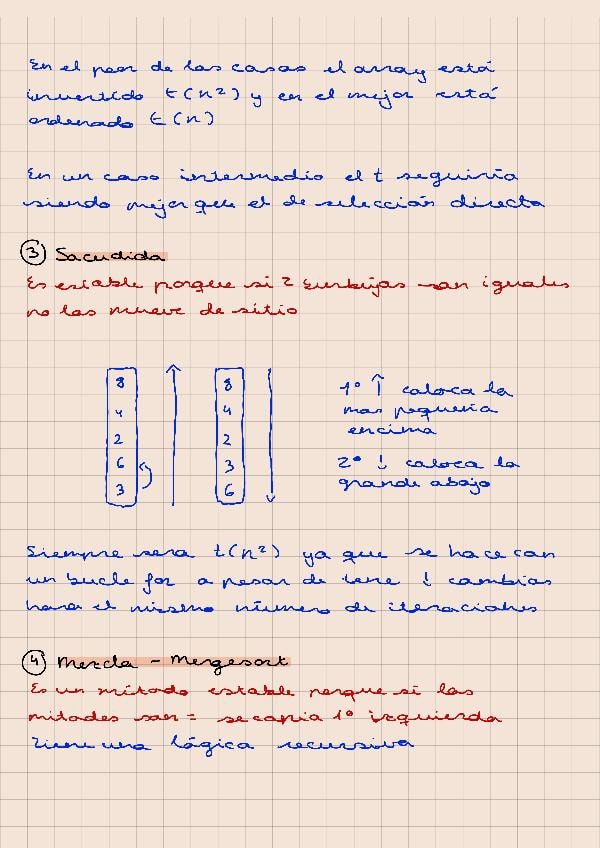 En el peor de los casos el array está
invertido t(n²) y en el mejor está
ordenado t(n)
En un caso intermedio el t seguiría
siendo mejor que el de selección directa
③ Sacudida
Es estable porque si 2 burbujas son iguales
no las mueve de sitio
8 8
4 4
2 2
6 3
3 6
1º ↑ coloca la
mas pequeña
encima
2º ↓ coloca la
grande abajo
Siempre sera t(n²) ya que se hace con
un bucle for a pesar de tene ↓ cambios
hara el mismo número de iteraciones
④ Mezcla - Mergesort
Es un método estable porque si las
mitades son = se copia 1º izquierda
Tiene una lógica recursiva